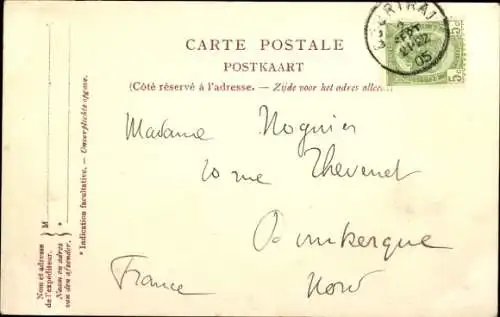 CARTE POSTALE
POSTKAART
(Côté réservé à l'adresse. — Zijde voor het adres
Madame Noguier
20 rue Thevenet
Dunkerque
France Nord
5c 5c
SEPT
11-22
05
Nom et adresse
de l'expéditeur.
Naam en adres
van den afzender.
M
* Indication facultative. — Onverplichte opgave.